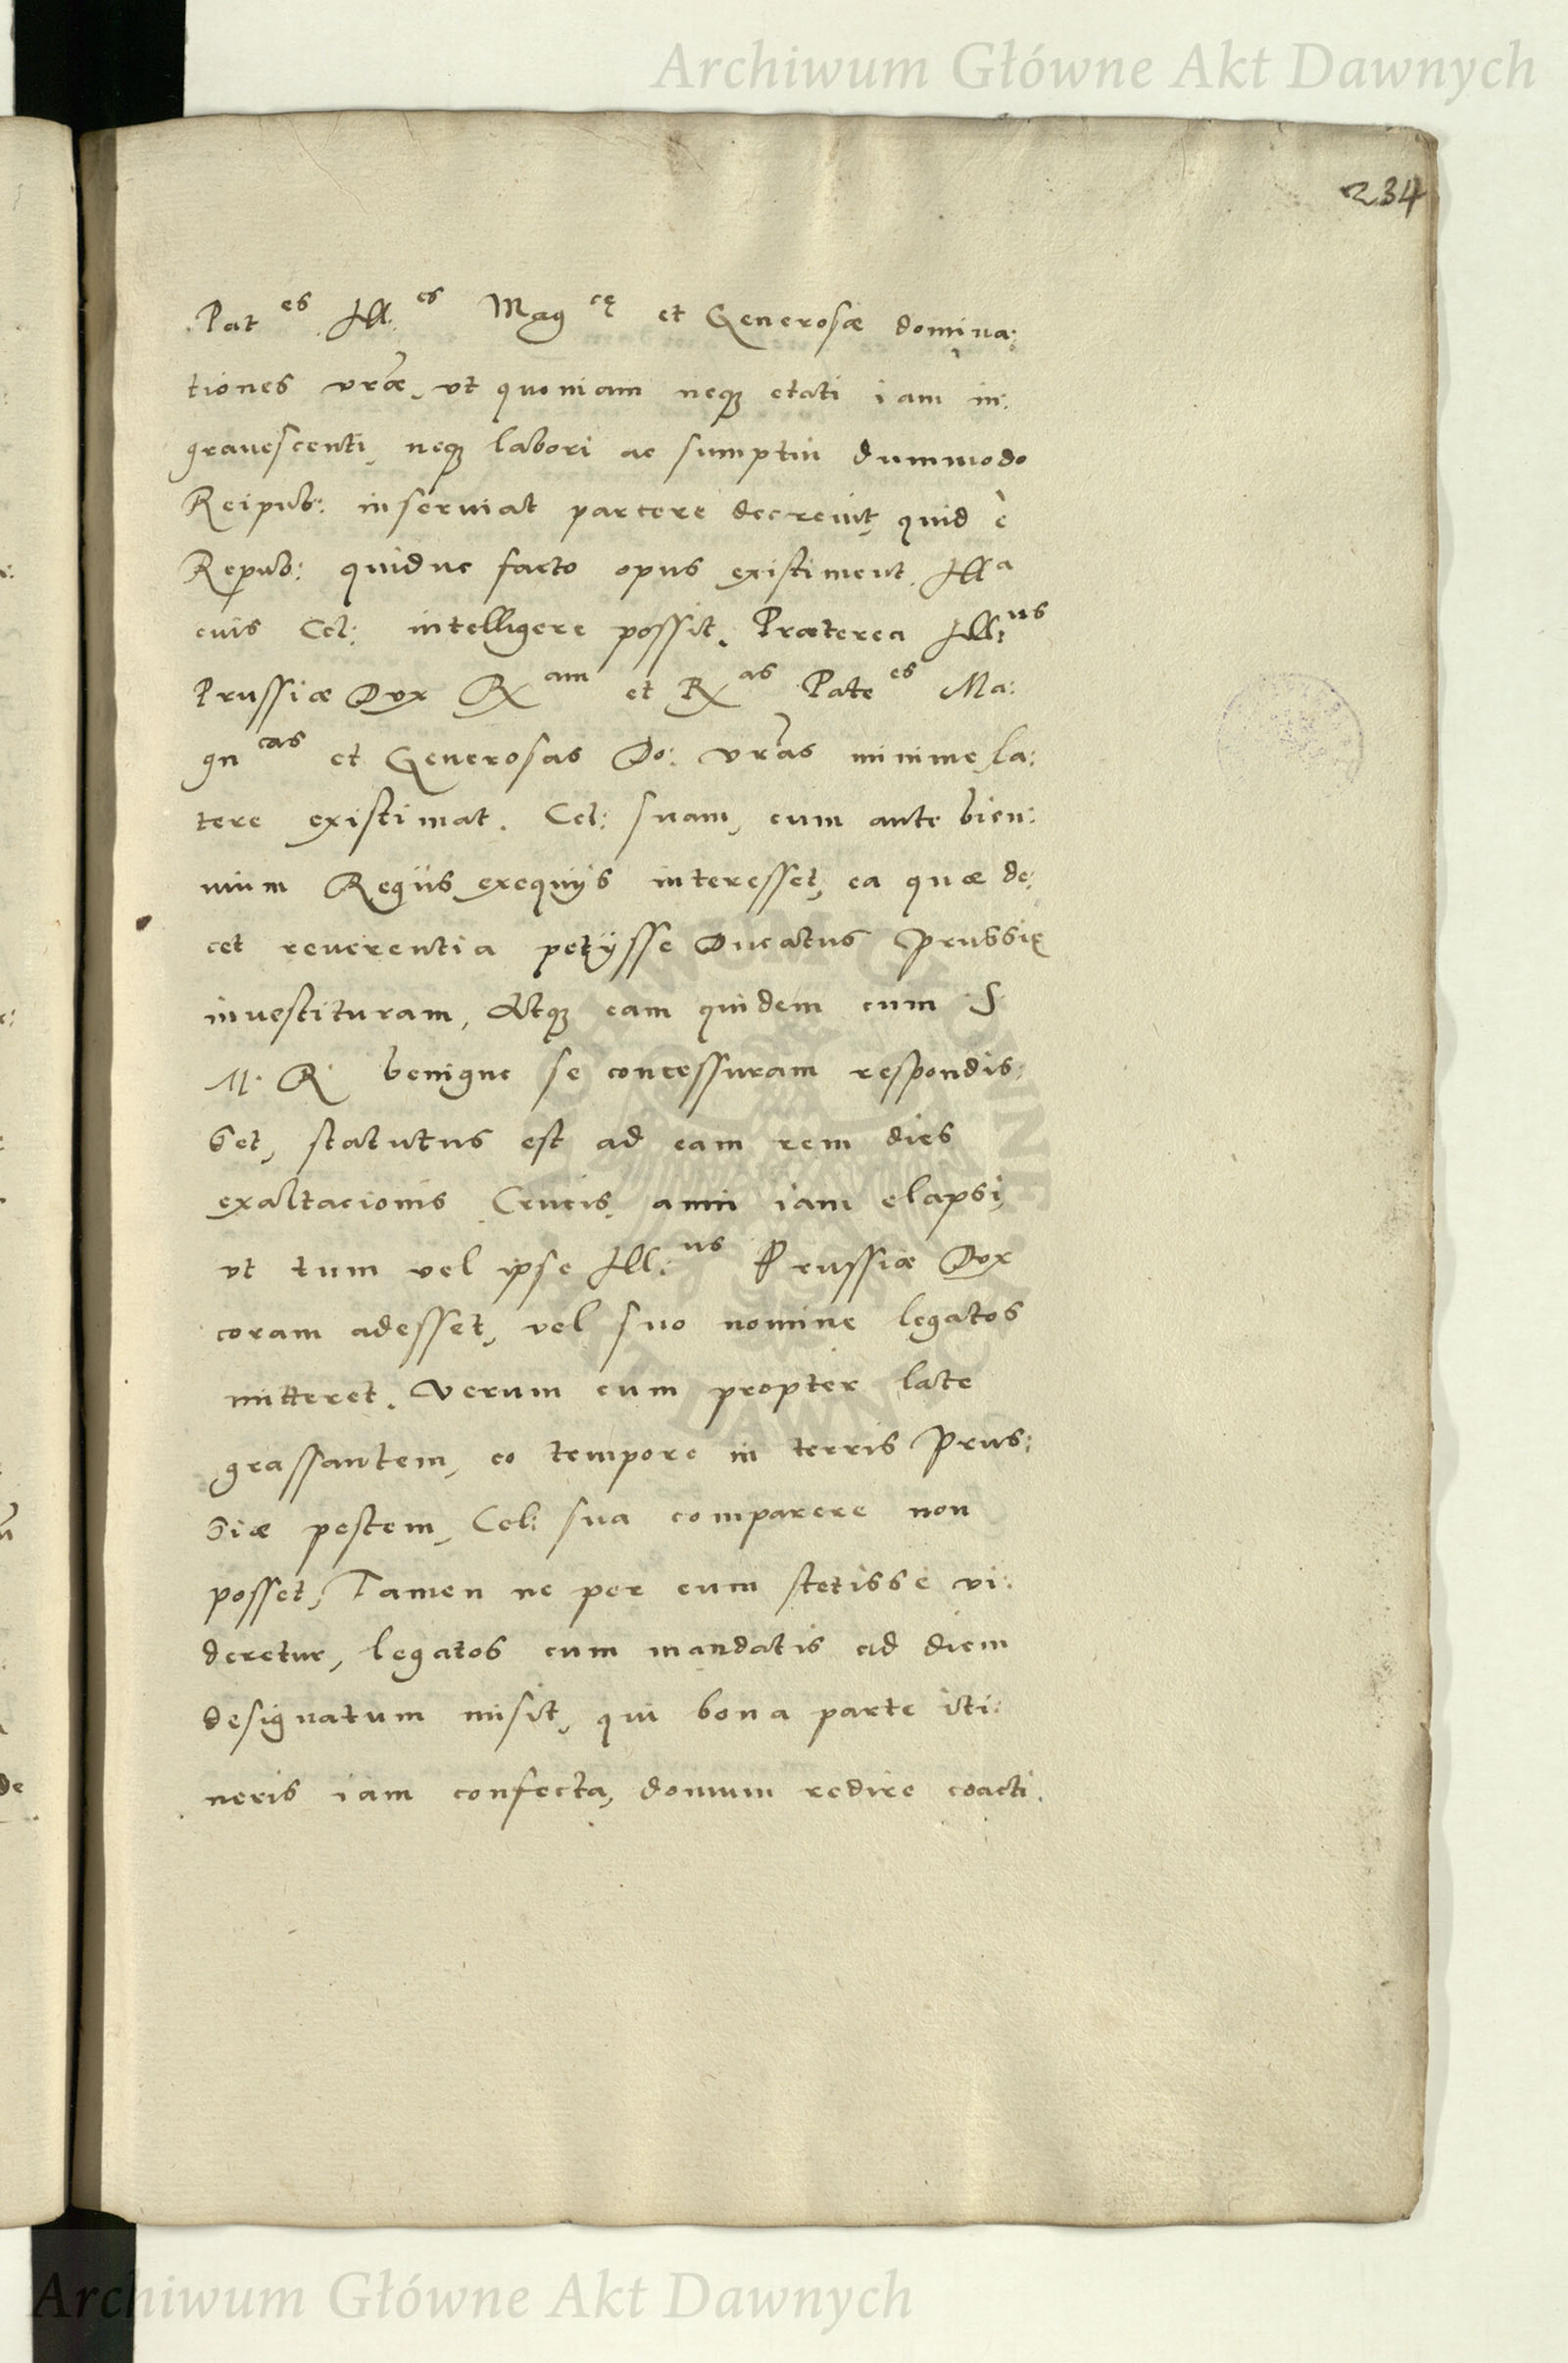 Archiwum Główne Akt Dawnych
234
Pat es Ill: es Mag cę et Generosæ domina:
tiones vræ, vt quoniam neq3 etati iam in:
grauescenti, neq3 labori ac sumptui dummodo
Reipub: inseruiat parcere decreuit, quid è
Repub: quidue facto opus existiment. Ill a
euis Cel: intelligere possit. Præterea Ill: us
Prussiæ Dux R am et R as Pate es Ma:
gn cas et Generosas Do: vras minime la:
tere existimat. Cel: suam, cum ante bien:
nium Regiis exequijs interesset, ea quæ de:
cet reuerentia petijsse Ducatus Prussię
inuestituram, Atq3 eam quidem cum S
M. R. benigne se concessuram respondis:
set, statutus est ad eam rem dies
exaltacionis Crucis anni iam elapsi,
vt tum vel ipse Ill: us Prussiæ Dux
coram adesset, vel suo nomine legatos
mitteret. Verum cum propter late
grassantem, eo tempore in terris Prus:
siæ pestem, Cel: sua comparere non
posset, Tamen ne per eum stetisse vi:
deretur, legatos cum mandatis ad diem
designatum misit, qui bona parte iti:
neris iam confecta, domum redire coacti.
Archiwum Główne Akt Dawnych